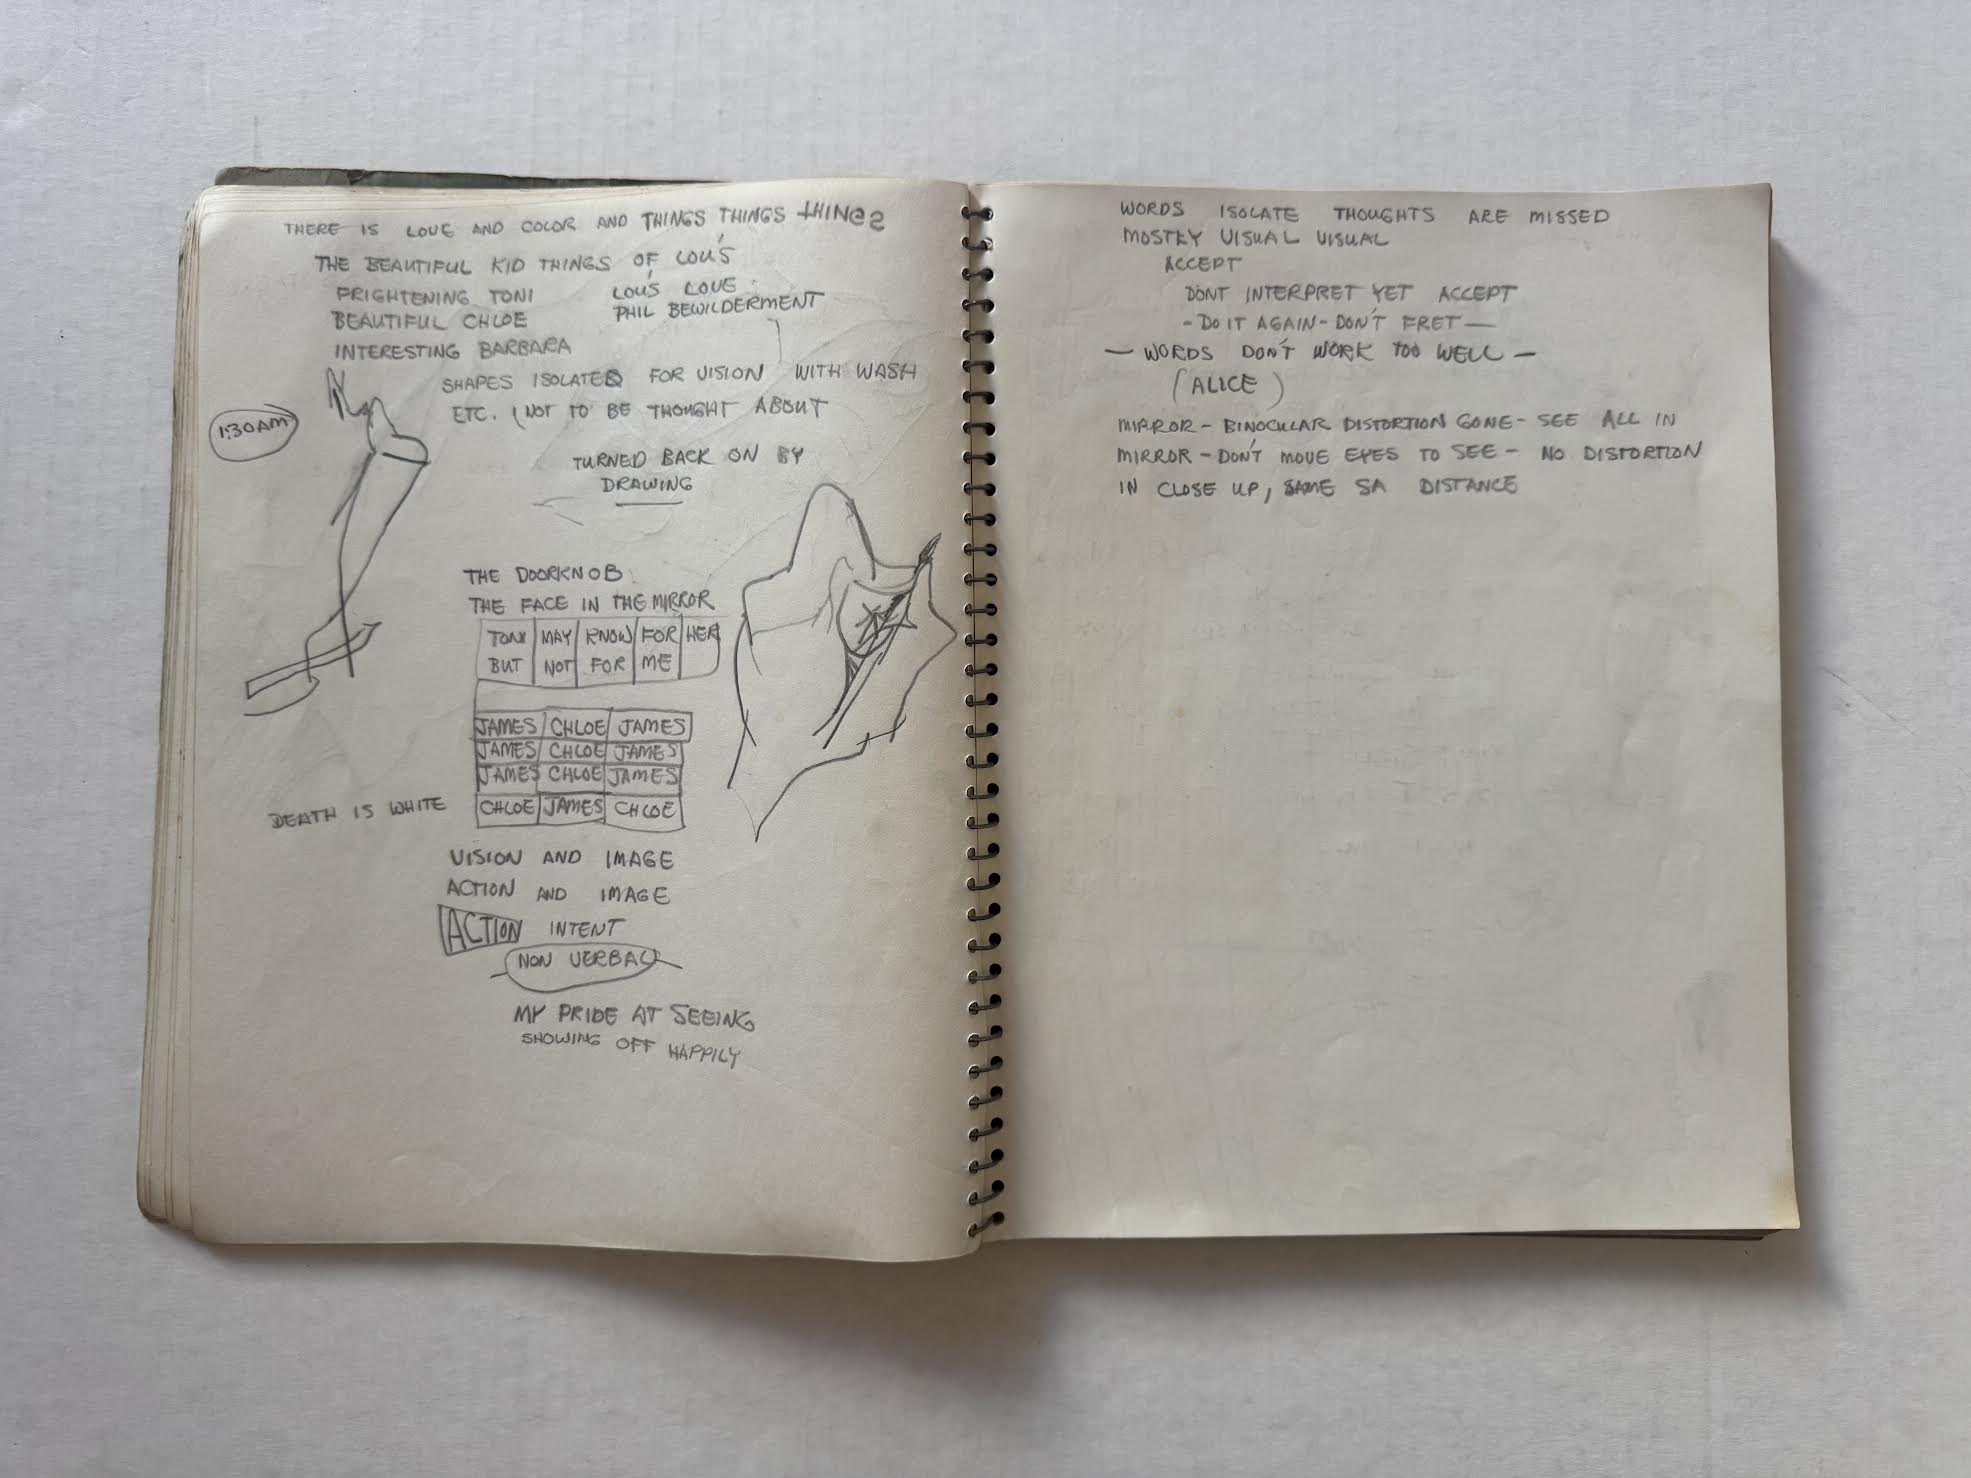 THERE IS LOVE AND COLOR AND THINGS THINGS THINGS
THE BEAUTIFUL KID THINGS OF LOU'S
FRIGHTENING TONI
BEAUTIFUL CHLOE
INTERESTING BARBARA
LOU'S LOVE
PHIL BEWILDERMENT
SHAPES ISOLATED FOR VISION WITH WASH
ETC. (NOT TO BE THOUGHT ABOUT
1:30AM
TURNED BACK ON BY
DRAWING
THE DOORKNOB
THE FACE IN THE MIRROR
TONI MAY KNOW FOR HER
BUT NOT FOR ME
JAMES CHLOE JAMES
JAMES CHLOE JAMES
JAMES CHLOE JAMES
CHLOE JAMES CHLOE
DEATH IS WHITE
VISION AND IMAGE
ACTION AND IMAGE
ACTION INTENT
NON VERBAL
MY PRIDE AT SEEING
SHOWING OFF HAPPILY
WORDS ISOLATE THOUGHTS ARE MISSED
MOSTLY VISUAL VISUAL
ACCEPT
DONT INTERPRET YET ACCEPT
- DO IT AGAIN - DON'T FRET —
— WORDS DON'T WORK TOO WELL —
(ALICE)
MIRROR - BINOCULAR DISTORTION GONE - SEE ALL IN
MIRROR - DON'T MOVE EYES TO SEE - NO DISTORTION
IN CLOSE UP, SAME SA DISTANCE